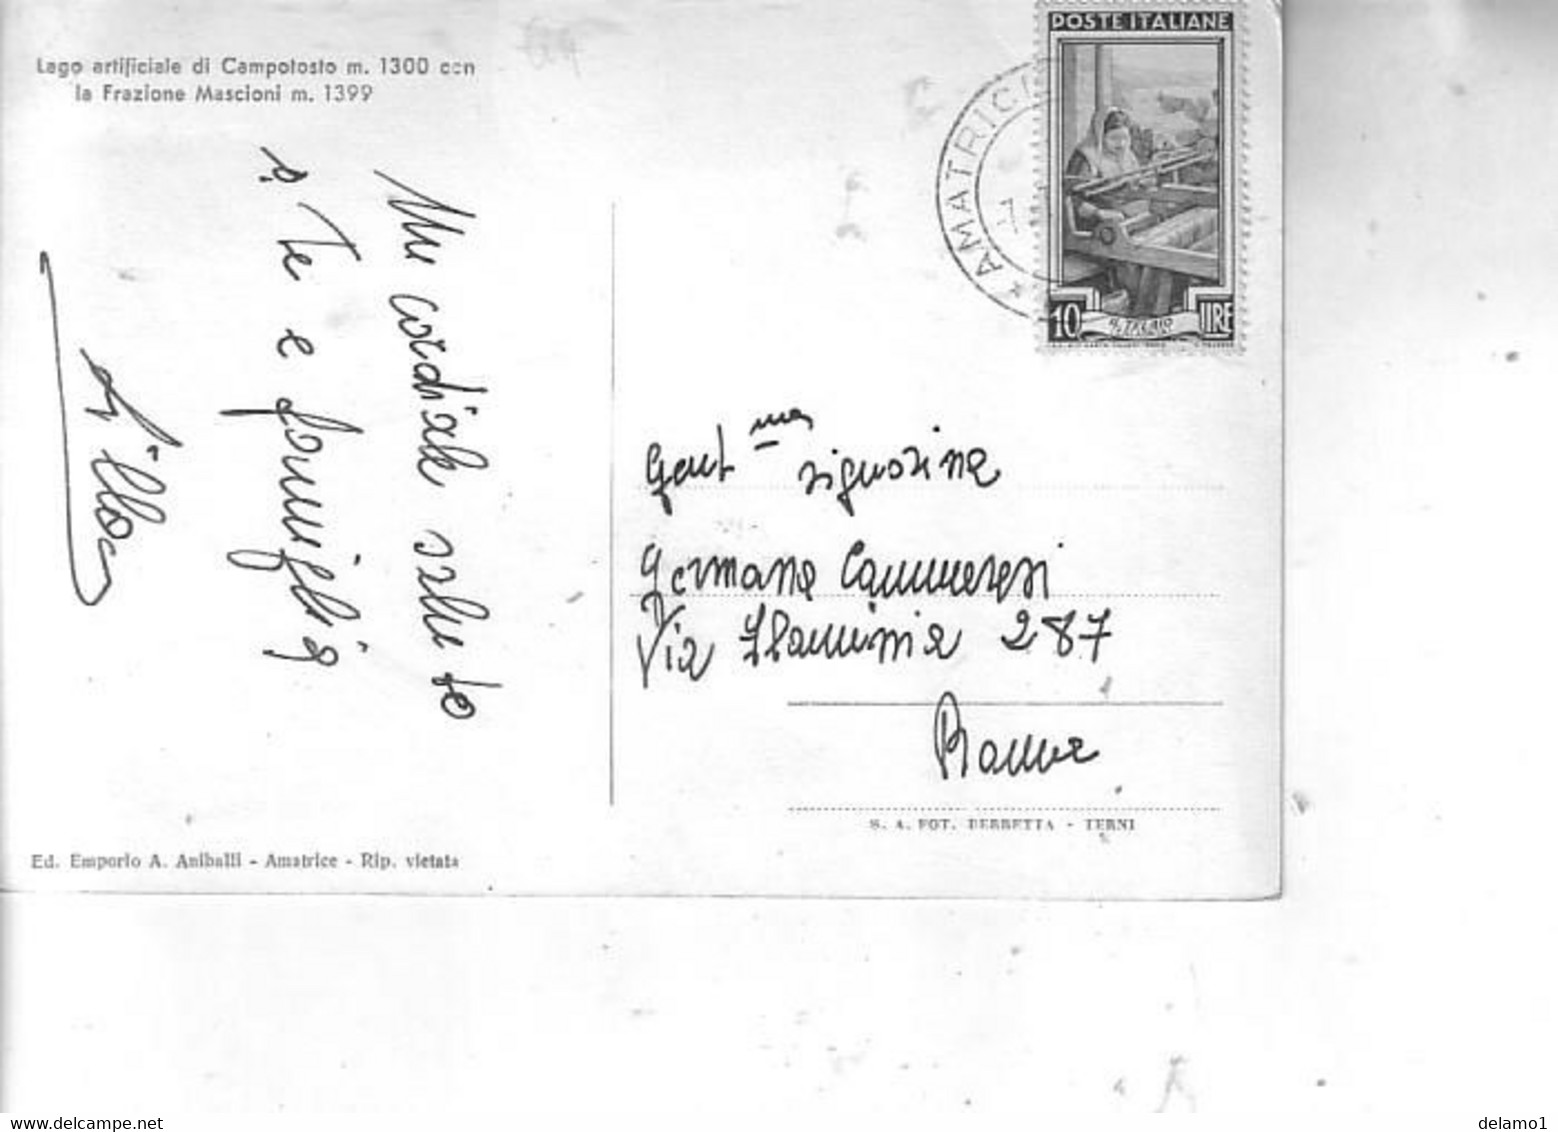 Lago artificiale di Campotosto m. 1300 con
la Frazione Mascioni m. 1399
Un cordiale saluto
a Te e famiglia
Lillo
POSTE ITALIANE
10 LIRE
IL TELAIO
AMATRICE
Gent.ma signorina
Germana Cammeresi
Via Flaminia 287
Roma
S. A. FOT. BERRETTA - TERNI
Ed. Emporio A. Aniballi - Amatrice - Rip. vietata
delcampe.net
delamo1